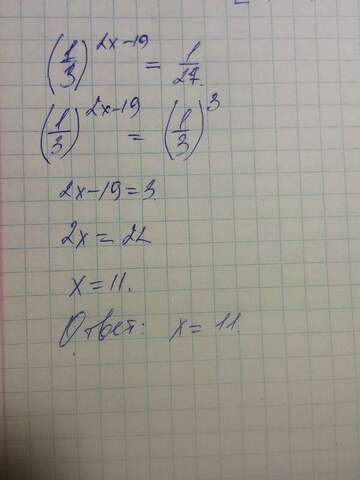 (1/3)^(2x-19) = 1/27.
(1/3)^(2x-19) = (1/3)^3
2x-19=3.
2x=22
x=11.
Ответ: x=11.